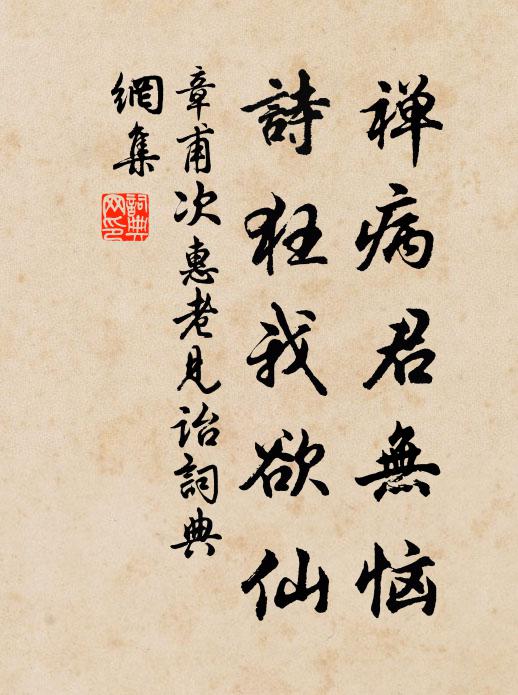 禅病君無恼
詩狂我欲仙
章甫次惠老見詒詞典
網集
詞典
网印